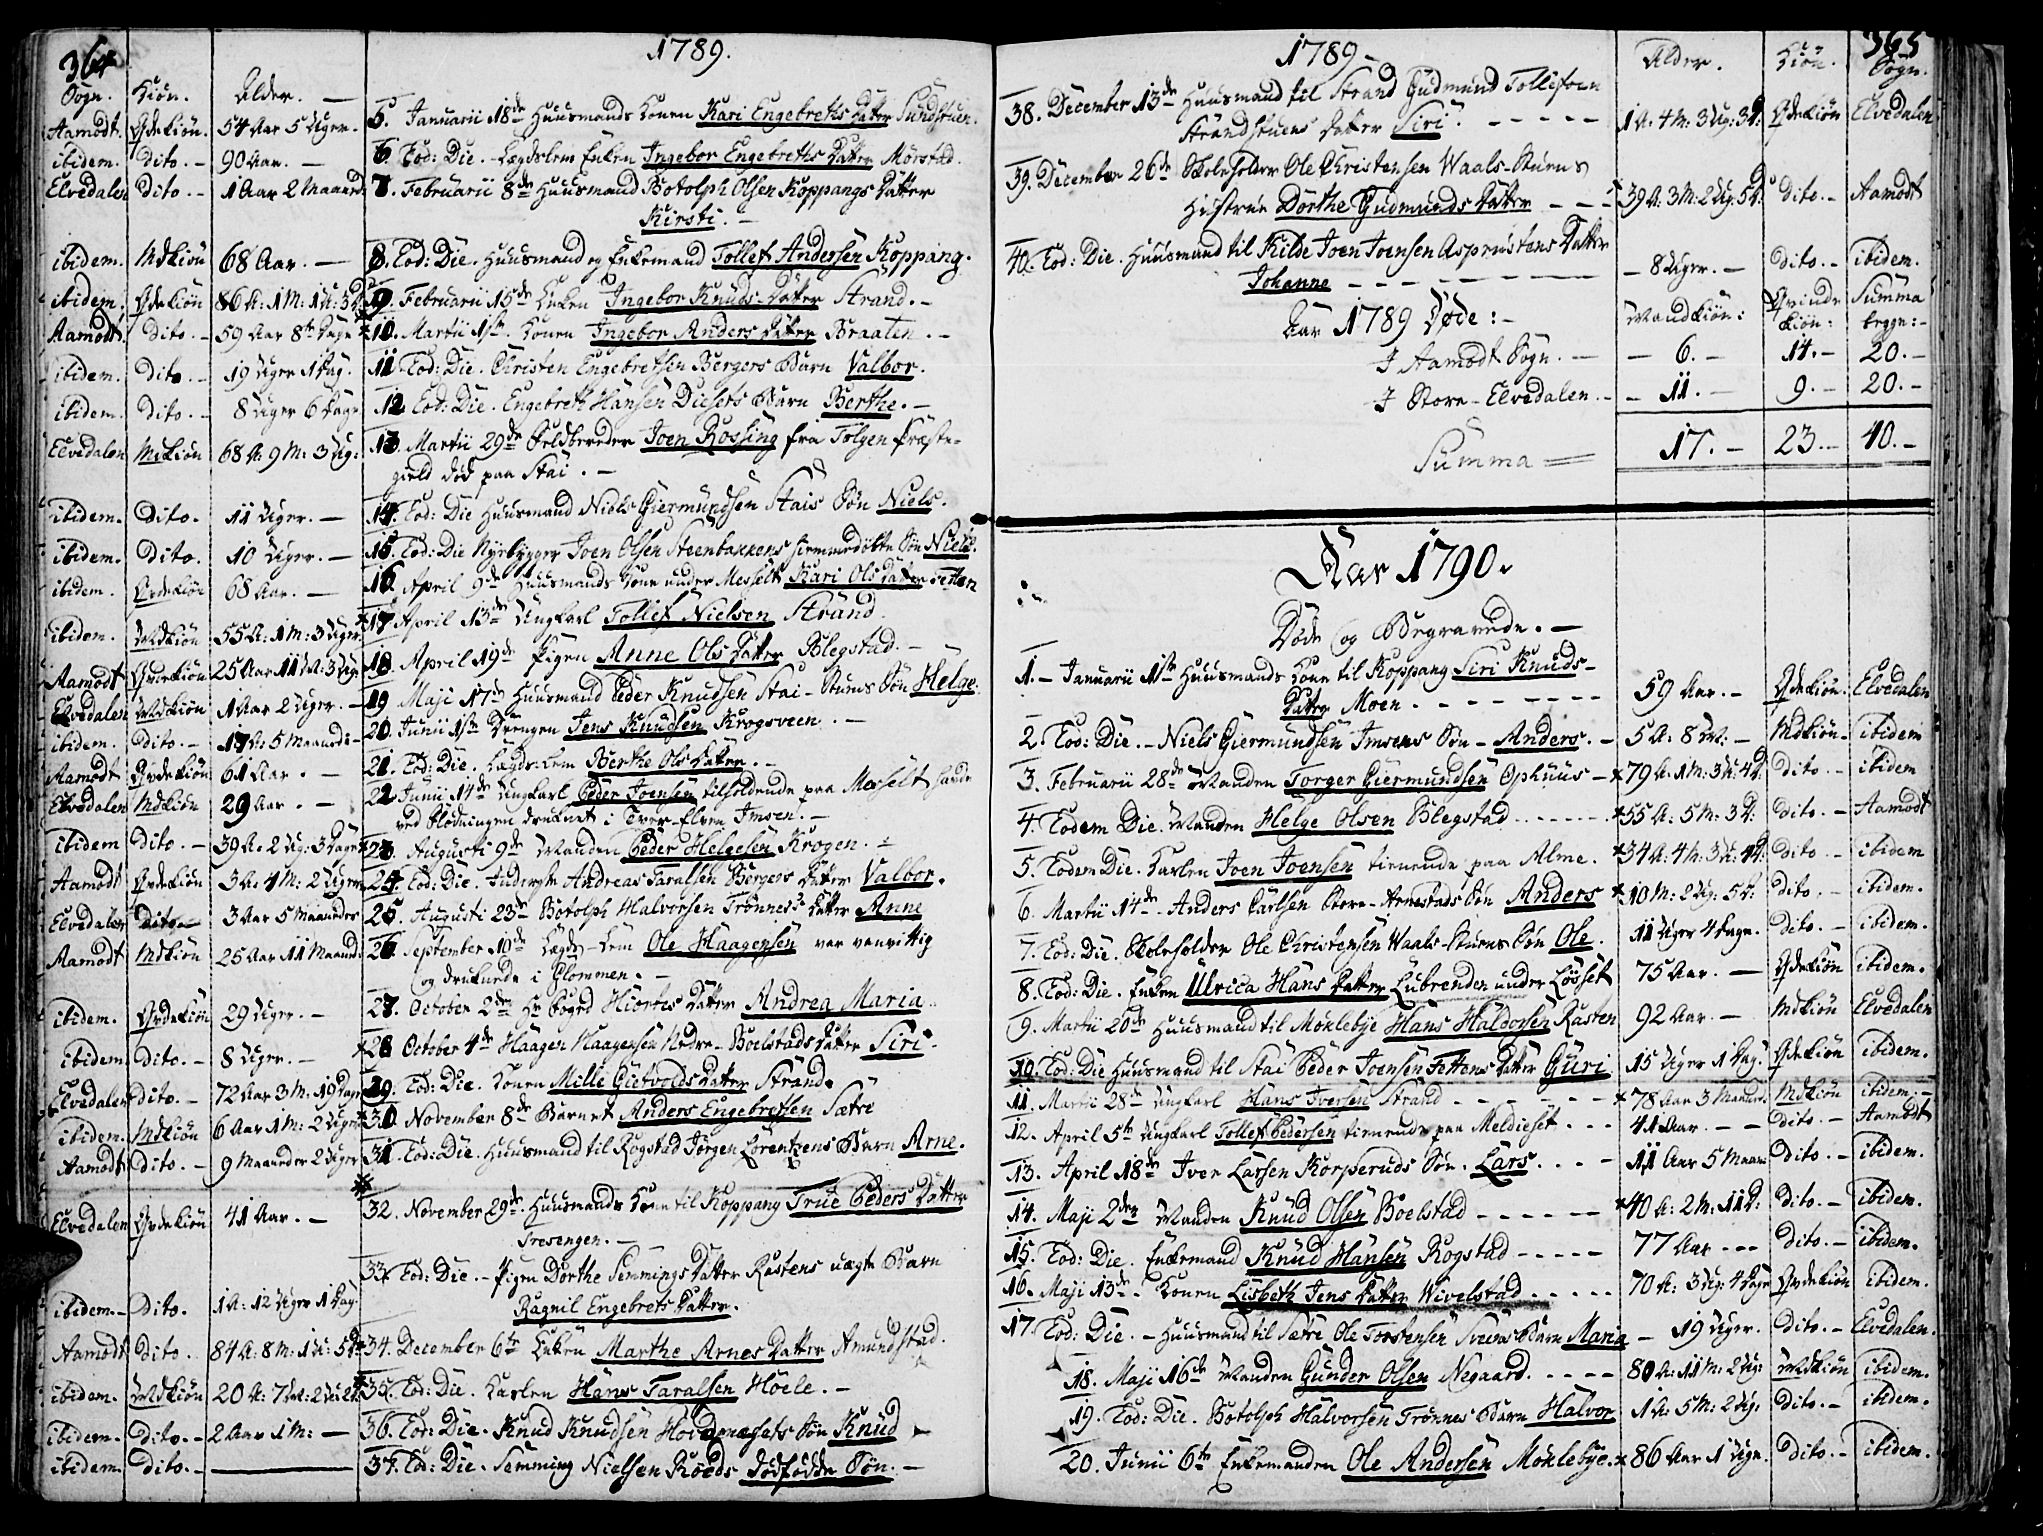 364
1789.
Sogn. Kiön. Alder. —
Aamodt. Qvdekiön. 54 Aar 5 Uger. 5. Januarii 18de Huusmands Konen Kari Engebreths Datter Sundstuen.
ibidem. Dito. – 90 Aar. — 6. Eod: Die. Lægdslem Enken Ingebor Engebreths Datter Mörstad.
Elvedalen Dito. – 1 Aar 2 Maaned 7. Februarii 8de Huusmand Botolph Olsen Koppangs Datter
Kirsti. –
ibidem. Mdkiön 68 Aar. — 8. Eod: Die. Huusmand og Enkemand Tollef Andersen Koppang.
ibidem. Qvdekiön 86 A: 1 M: 1 U: 3 D. 9. Februarii 15de Enken Ingebor Knuds Datter Strand. –
Aamodt. Dito. – 59 Aar 8te Dage × 10. Martii 1ste Konen Ingebor Anders Datter Braaten. –
ibidem. Dito. – 19 Uger 1 Dag. 11 Eod: Die. Christen Engebrethsen Bergers Barn Valbor.
ibidem. Dito. – 8 Uger 6 Dage 12. Eod: Die. Engebreth Hansen Diesets Barn Berthe. –
Elvedalen Mdkiön 68 A: 9 M: 3 Ug: 13. Martii 29de Feldbereder Joen Rossing fra Tolgen Præste-
gield död paa Stai. –
ibidem. Dito. 11 Uger. — 14. Eod: Die Huusmand Niels Giermundsen Stais Sön Niels.
ibidem. Dito. 10 Uger. — 15. Eod: Die Nyebygger Joen Olsen Steenbakkens hiemmedöbte Sön Niels.
ibidem. Qvdekiön 68 Aar. — 16. April 9de Huusmands Kone under Messelt Kari Ols Datter Fetten
ibidem. Mdkiön 55 A: 1 M: 3 Uger × 17 April 13de Ungkarl Tollef Nielsen Strand.
Aamodt Qvdekiön 25 Aar 11 M: 3 Ug. 18. April 19de Pigen Anne Ols Datter Blegstad. –
Elvedalen Mdkiön 1 Aar 2 Uger. – 19 Maji 17de Huusmand Peder Knudsen Stai-Stuens Sön Helge.
ibidem. Dito. – 17 A: 5 Maaneder 20. Junii 1ste Drengen Jens Knudsen Krogsveen. –
Aamodt Qvdekiön 61 Aar. – 21. Eod: Die. Lægds-Lem Berthe Ols Datter. –
Elvedalen Mdkiön 29 Aar. – 22 Junii 14de Ungkarl Peder Joensen tilholdende paa Messelt hade
ved Flödningen druknet i Tver-Elven Imsen. –
ibidem Dito. – 39 A. 2 Ug: 3 Dage × 23. Augusti 9de Manden Peder Helgesen Krogen. –
Aamodt Qvdekiön 3 A. 4 M: 2 Uger 24. Eod: Die. Andreas Taralsen Bergers Datter Valbor.
Elvedalen Dito 3 Aar 5 Maaneder 25. Augusti 23de Botolph Halvorsen Trönnes's Datter Anne
Aamodt Mdkiön 25 Aar 11 Maaned 26 September 10de Lægds-Lem Ole Haagensen var vanvittig
og druknede i Glommen. –
ibidem. Qvdekiön 29 Uger. — 27. October 2den Hr Foged Hiorths Datter Andrea Maria.
ibidem Dito. – 8 Uger. — × 28 October 4de Haagen Haagensen Nedre-Boelstads Datter Siri.
Elvedalen Dito. – 72 Aar 3 M. 19 Dage 29. Eod: Die. Konen Mille Gietvolds Datter Strand.
ibidem. Mdkiön 6 Aar 1 M: 2 Uger × 30 November 8de Barnet Anders Engebretsen Sætre
Aamodt Dito. – 9 Maaneder 2 Uger 31. Eod: Die. Huusmand til Rogstad Jörgen Lorentzens Barn Arne.
Elvedalen Qvdekiön 41 Aar. – 32. November 29de. Huusmands Kone til Koppang True Peders Datter
Tresengen. –
33. Eod: Die. – Pigen Dorthe Semmings Datter Rastens uægte Barn
ibidem. – Dito. 1 A: 12 Uger 1 Dag. Ragnil Engebrets Datter.
Aamodt Dito. 84 A: 8 M: 1 U: 5 D 34. December 6te Enken Marthe Arnes Datter Amundstad.
ibidem. Mdkiön 20 A: 7 M: 2 U: 2 D. 35. Eod: Die. Karlen Hans Taralsen Hoele. –
ibidem. – Dito. – 2 Aar 1 M: — 36. Eod: Die. Knud Knudsen Hovdmoesets Sön Knud –
ibidem. Dito. – — 37. Eod: Die. Semming Nielsen Roeds dödfödde Sön. –
365
1789 –
Alder. Kiön. Sogn.
38. December 13de Huusmand til Strand Gudmund Tollefsen
Strandstuens Datter Siri. – – – – – 1 A. 4 M: 3 Ug: 3 D. Qvdekiön Elvedalen
39. December 26de Skoleholder Ole Christensen Waals-Stuens
Hustrue Dorthe Gudmunds Datter – – – 39 A: 3 M: 2 Ug: 5 D. Dito. – Aamodt
40. Eod: Die. Huusmand til Kilde Joen Joensen Asprustens Datter
Johanne – – – – – – – – 8 Uger. – Dito. – ibidem.
Aar 1789 Döde: – Mandkiön: Qvindekiön: Summa begge: –
I Aamodt Sogn. – – 6. – 14. – 20. –
I Store-Elvedalen. – – 11. – 9. – 20. –
Summa = 17. – 23. – 40. –
Aar 1790.
Döde og Begravede. –
1. – Januarii 1ste Huusmands Kone til Koppang Siri Knuds-
Datter Moen. – – – – – – 59 Aar. – Qvdekiön. Elvedalen
2. Eod: Die. – Niels Giermundsen Imsens Sön – Anders. – 5 A: 8 M: – Mdkiön. ibidem
3. Februarii 28de Manden Torger Giermundsen Ophuus – × 79 A: 1 M: 3 U: 4 D. Dito. – ibidem
4. Eodem Die. Manden Helge Olsen Blegstad – – – × 55 A: 5 M: 3 D: Dito. – Aamodt
5. Eodem Die. Karlen Joen Joensen tienende paa Alme. × 34 A: 4 M: 3 U: 4 D: Dito. – ibidem
6. Martii 14de. Anders Carlsen Store-Arnestads Sön Anders × 10 M: 2 Ug: 5 D: Dito. – ibidem.
7. Eod: Die. Skoleholder Ole Christensen Waals-Stuens Sön Ole. 11 Uger 4 Dage. Dito. – ibidem.
8. Eod: Die. Enken Ulrica Hans Datter Lubrenden under Lösset 75 Aar. — Qvdekiön ibidem.
9. Martii 20de Huusmand til Moklebye Hans Haldorsen Rasten 92 Aar. – Mdkiön Elvedalen
10. Eod: Die Huusmand til Stai Peder Joensen Fettens Datter Guri. 15 Uger 1 Dag. Qvdekiön ibidem.
11. Martii 28de Ungkarl Hans Iversen Strand – – – – – × 78 Aar 3 Maaned: Mdkiön ibidem. –
12. April 5te Ungkarl Tollef Pedersen tienende paa Meldieset. – – 41 Aar. – – Dito. – Aamodt
13. April 18de Iver Larsen Korperuds Sön. Lars. – – – 11 Aar 5 Maan: Dito. – ibidem.
14. Maji 2den Manden Knud Olsen Boelstad – – – – – × 40 A: 2 M: 11 D: Dito. – ibidem.
15. Eod: Die. Enkemand Knud Hansen Rogstad – – – – – 77 Aar – – – Dito. – ibidem.
16. Maji 13de. Konen Lisbeth Jens Datter Wivelstad – – – – – 70 A: 3 Ug: 4 Dage Qvdekiön ibidem.
17. Eod: Die. – Huusmand til Sætre Ole Torstensen Sveens Barn Maria – 19 Uger. Dito. – Elvedalen.
18. Maji 16de Manden Gunder Olsen Negaard. – – – – 80 A: 11 M: 2 Ug: Mdkiön ibidem.
19. Eod: Die. Botolph Halvorsen Trönnes Barn Halvor 1 A: 5 M: 2 Ug: Dito. – ibidem.
20. Junii 6te Enkemanden Ole Andersen Moklebye. × 86 Aar 1 Uge. Dito. – ibidem.